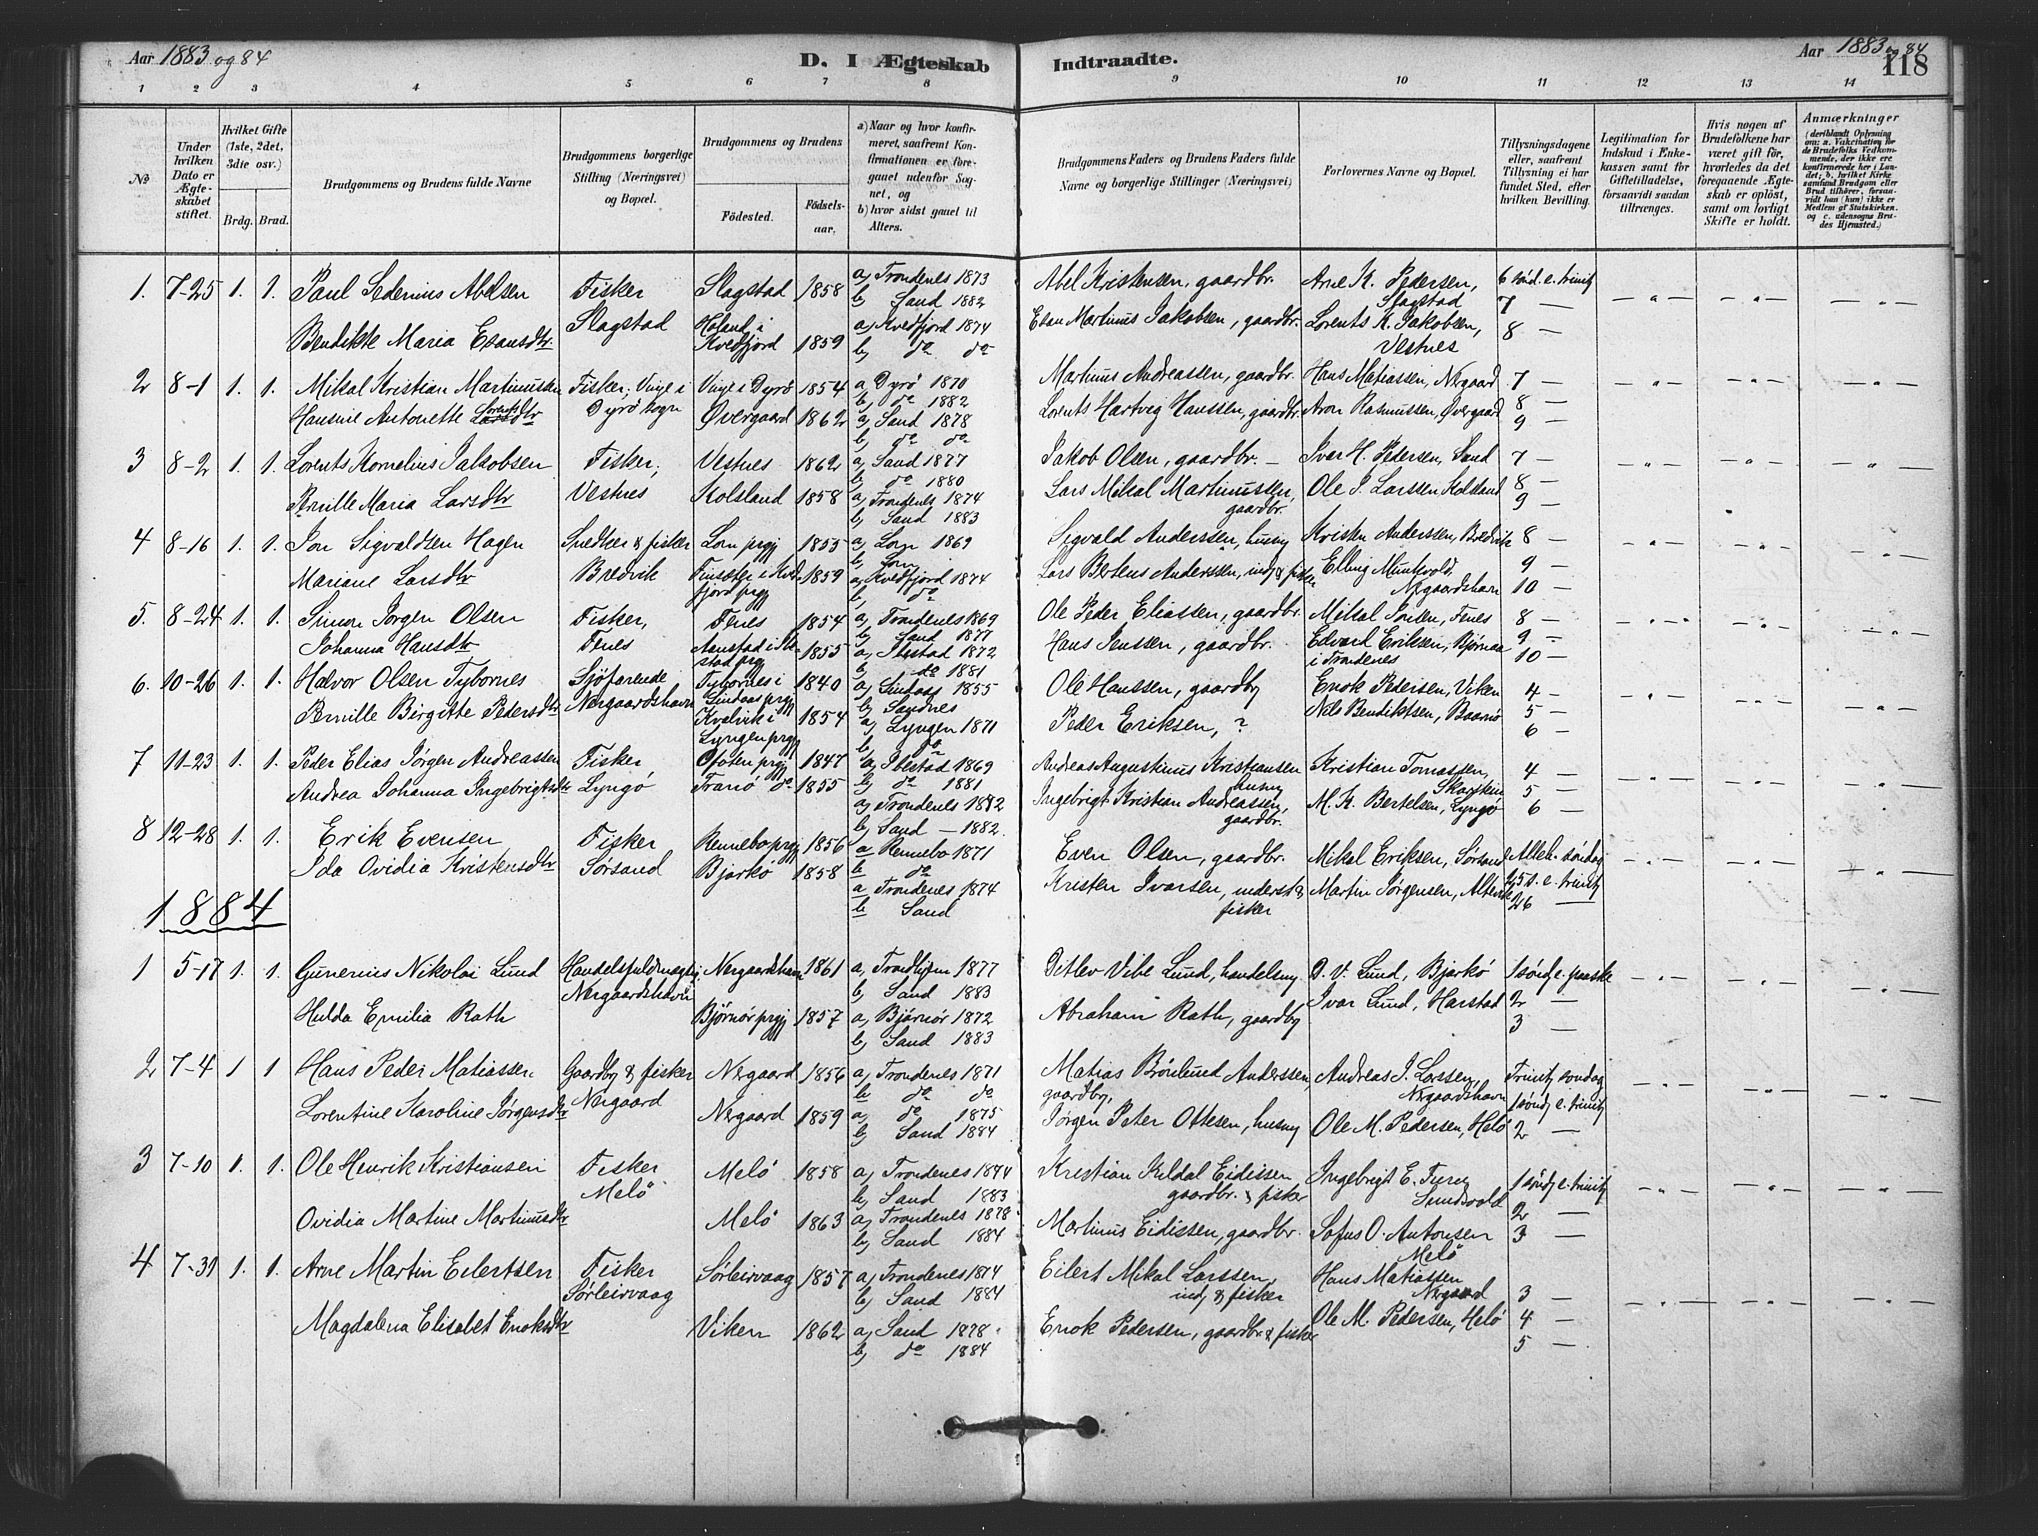 Aar 1883 og 84
D. I Ægteskab Indtraadte.
Aar 1883 og 84
118
1 2 3 4 5 6 7 8 9 10 11 12 13 14
No
Under hvilken Dato er Ægteskabet stiftet.
Hvilket Gifte (1ste, 2det, 3die osv.)
Brdg. Brud.
Brudgommens og Brudens fulde Navne
Brudgommens borgerlige Stilling (Næringsvei) og Bopæl.
Brudgommens og Brudens
Fødested. Fødselsaar.
a) Naar og hvor konfirmeret, saafremt Konfirmationen er foregaaet udenfor Sognet, og
b) hvor sidst gaaet til Alters.
Brudgommens Faders og Brudens Faders fulde Navne og borgerlige Stillinger (Næringsvei)
Forlovernes Navne og Bopæl.
Tillysningsdagene eller, saafremt Tillysning ei har fundet Sted, efter hvilken Bevilling.
Legitimation for Indskud i Enkekassen samt for Giftetilladelse, forsaavidt saadan tiltrænges.
Hvis nogen af Brudefolkene har været gift før, hvorledes da det foregaaende Ægteskab er opløst, samt om lovligt Skifte er holdt.
Anmærkninger
(deriblandt Oplysning om: a. Vakcination for de Brudefolks Vedkommende, der ikke ere konfirmerede her i Landet; b. hvilket Kirkesamfund Brudgom eller Brud tilhører, forsaavidt han (hun) ikke er Medlem af Statskirken, og c. udensogns Brudes Hjemsted.)
1. 7-25 1. 1. Paul Sedenius Abelsen Fisker Slagstad 1858 a, Trondenes 1873 Abel Kristensen, gaardbr. Arne K. Pedersen, 6 sönd. e. trinit
Slagstad b, Sand 1882 Slagstad 7 —
Bendikte Maria Esausdtr Holand i Kvedfjord 1859 a, Kvedfjord 1874 Esau Martinus Jakobsen, gaardbr. Lorents K. Jakobsen, 8 —
b, do do Vestnes
2 8-1 1. 1. Mikal Kristian Martinussen Fisker; Vinje i Vinje i Dyrö 1854 a Dyrö 1870 Martinus Andreassen, gaardbr. Hans Matiassen, Nergaard 7 —
Dyrö sogn b, do 1882
Hansine Antonette Lorentsdtr Övergaard 1862 a, Sand 1878 Lorents Hartvig Hanssen, gaardbr. Aron Rasmussen, Övergaard 8 —
b, do do 9 —
3 8-2 1. 1. Lorents Kornelius Jakobsen Fisker, Vestnes 1862 a, Sand 1877 Jakob Olsen, gaardbr. — Ivar H. Pedersen, Sand 7 —
b, do 1880
Pernille Maria Larsdtr Vestnes Kolsland 1858 a, Trondenes 1874 Lars Mikal Martinussen, Ole J. Larssen, Kolsland 8 —
b, Sand 1883 gaardbr. 9 —
4 8-16 1. 1. Jon Sigvaldsen Hagen Snedker & fisker Lom prgj 1855 a, Lom 1869 Sigvald Anderssen, husmd Kristen Anderssen, Bredvik 8 —
b, Lom
Mariane Larsdtr Bredvik Finsæter i Kvedfjord prgj 1859 a, Kvedfjord 1874 Lars Bertens Anderssen, indj & fisker Elling Munkvold, 9 —
b, do Nergaardshavn 10 —
5. 8-24 1. 1. Simon Jørgen Olsen Fisker, Fenes 1854 a, Trondenes 1869 Ole Peder Eliassen, gaardbr. Mikal Jonsen, Fenes 8 —
b, Sand 1877
Johanna Hansdtr Fenes Aanstad i Ibestad prgj 1855 a, Ibestad 1872 Hans Jenssen, gaardbr. Edvard Eriksen, Bjørnaa 9 —
b, do 1881 i Trondenes 10 —
6. 10-26 1. 1. Halvor Olsen Tybornes Sjöfarende Tybornes i Lindaas prgj 1840 a, Lindaas 1855 Ole Hanssen, gaardbg Enok Pedersen, Viken 4 —
Nergaardshavn b, Sandnes
Pernille Birgitte Pedersdtr Kvalvik i Lyngen prgj 1854 a, Lyngen 1871 Peder Eriksen, ? Nils Bendiktsen, Baarnö 5 —
b, do 6 —
7 11-23 1. 1. Peder Elias Jørgen Andreassen Fisker Ofoten prgj 1847 a, Ibestad 1869 Andreas Augustinus Kristiansen Kristian Tomassen, 4 —
b, do 1881 husmd
Andrea Johanna Ingebrigtsdtr Lyngö Tranö do 1855 a, Trondenes 1872 Ingebrigt Kristian Andreassen, M. K. Bertelsen, Lyngö 5 —
b, Sand — 1882 gaardbr. 6 —
8 12-28 1. 1. Erik Evensen Fisker Rennebo prgj 1856 a Rennebo 1871 Even Olsen, gaardbr. Mikal Eriksen, Sörsand Alleh. söndag
b do
Ida Ovidia Kristensdtr Sörsand Bjarkö 1858 a Trondenes 1874 Kristen Ivarsen, inderst & Martin Jørgensen, Altevik 25 s. e. trinit
b Sand fisker 26 —
1884
1 5-17 1. 1. Gunerius Nikolai Lund Handelsfuldmægtig, Nergaardshavn 1861 a, Trondhjem 1877 Ditlev Vibe Lund, handelsmd D. V. Lund, Bjarkö 1 sönd e. paaske
Nergaardshavn b, Sand 1883 Ivar Lund, Harstad 2 —
Hulda Emilia Rath Bjørnör prgj 1857 a, Bjørnör 1872 Abraham Rath, gaardbg 3 —
b, Sand 1883
2 7-4 1 1 Hans Peder Matiassen Gaardbg & fisker Nergaard 1856 a, Trondenes 1871 Matias Brönlund Anderssen Andreas J. Larssen, Trinit. söndag
Nergaard b do do gaardbg, Nergaardshavn 1 sönd e. trinit
Lorentine Karoline Jørgensdtr Nergaard 1859 a, do 1875 Jørgen Peter Ottesen, husmd Ole M. Pedersen, Melö 2 —
b, Sand 1884
3 7-10 1. 1. Ole Henrik Kristiansen Fisker Melö 1858 a, Trondenes 1874 Kristian Kildal Eidissen Ingebrigt E. 1 sönd e. trinit
Melö b, Sand 1883 gaardbr. & fisker Sundsvold
Ovidia Martine Martinusdtr Melö 1863 a, Trondenes 1878 Martinus Eidissen, gaardbr. Sofus O. Antonsen 2 —
b, Sand 1884 Melö 3 —
4 7-31 1. 1. Arne Martin Eilertsen Fisker Sörleirvaag 1857 a, Trondenes 1874 Eilert Mikal Larssen, Hans Matiassen
Sörleirvaag b, Sand 1884 indj & fisker Nergaard 3 —
Magdalena Elisabet Enoksdtr Viken 1862 a, Sand 1878 Enok Pedersen, gaardbr & fisker Ole M. Pedersen, Melö 4 —
b, do 1884 5 —